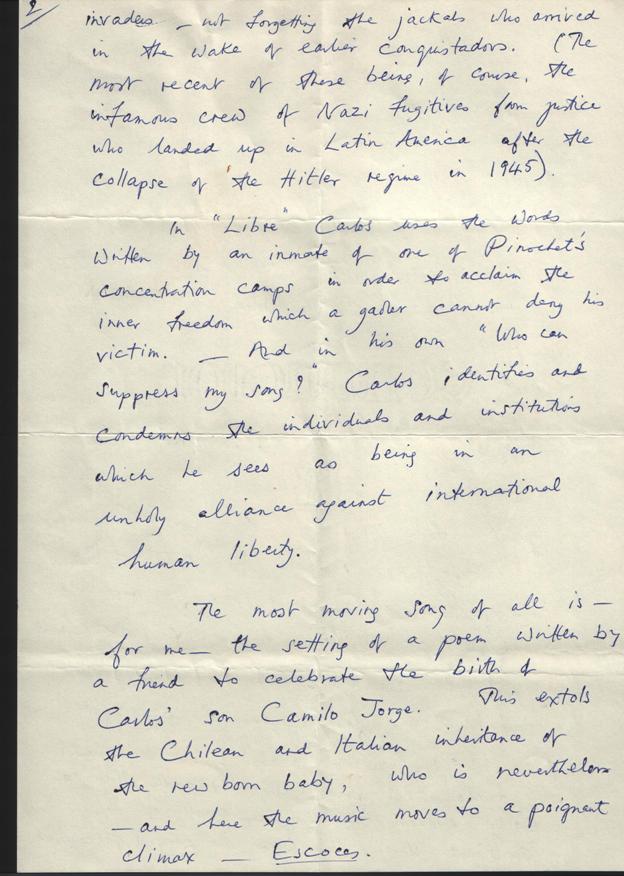 2
invaders – not forgetting the jackals who arrived
in the wake of earlier conquistadors. (The
most recent of these being, of course, the
infamous crew of Nazi fugitives from justice
who landed up in Latin America after the
collapse of the Hitler regime in 1945).
In "Libre" Carlos uses the words
written by an inmate of one of Pinochet's
concentration camps in order to acclaim the
inner freedom which a gaoler cannot deny his
victim. — And in his own "Who can
suppress my song?" Carlos identifies and
condemns the individuals and institutions
which he sees as being in an
unholy alliance against international
human liberty.
The most moving song of all is —
for me — the setting of a poem written by
a friend to celebrate the birth of
Carlos' son Camilo Jorge. This extols
the Chilean and Italian inheritance of
the new born baby, who is nevertheless
— and here the music moves to a poignant
climax — Escoces.